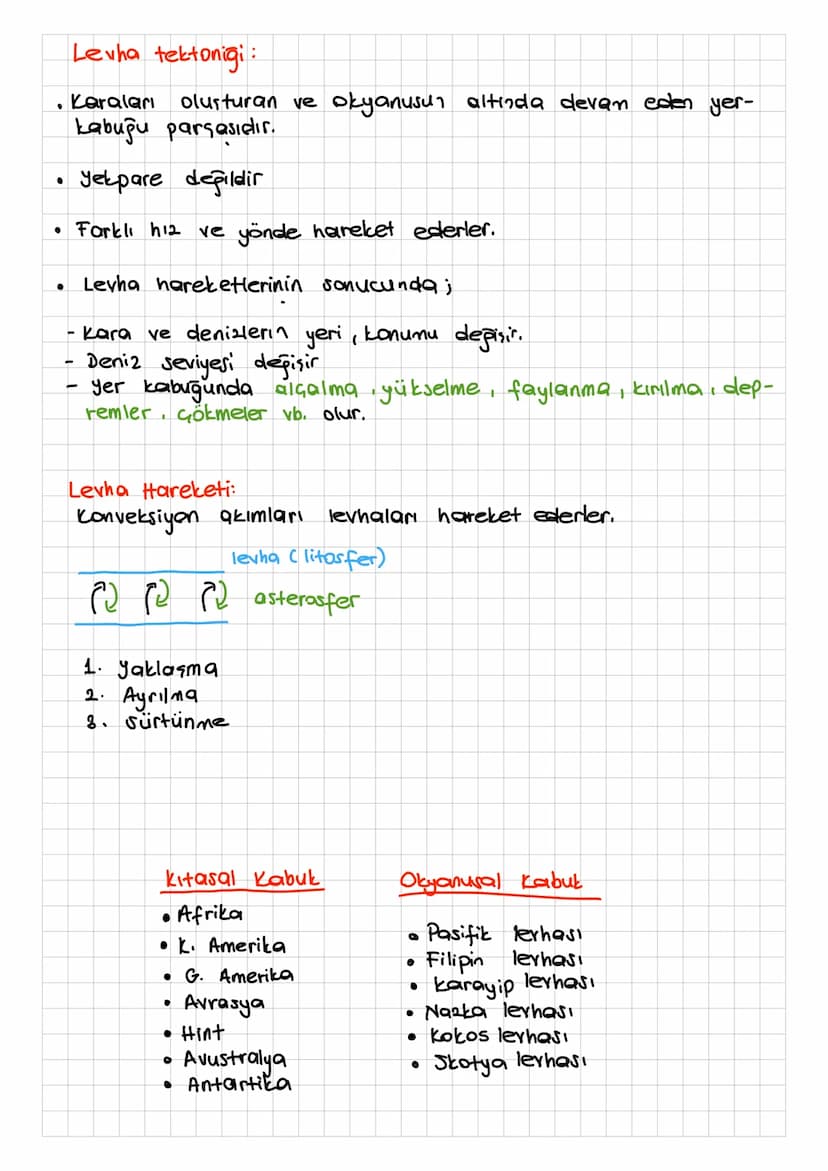 Levha tektoniği:
• Karaları oluşturan ve okyanusun altında devam eden yer-
kabuğu parçasıdır.
• Yekpare değildir
• Farklı hız ve yönde hareket ederler.
• Levha hareketlerinin sonucunda;
- Kara ve denizlerin yeri, konumu değişir.
- Deniz seviyesi değişir
- Yer kabuğunda alçalma, yükselme, faylanma, kırılma, dep-
remler, çökmeler vb. olur.
Levha Hareketi:
Konveksiyon akımları levhaları hareket ederler.
levha (litosfer)
asterosfer
1. Yaklaşma
2. Ayrılma
3. Sürtünme
Kıtasal Kabuk
• Afrika
• K. Amerika
• G. Amerika
• Avrasya
• Hint
• Avustralya
• Antartika
Okyanusal Kabuk
• Pasifik levhası
• Filipin levhası
• Karayip levhası
• Nazka levhası
• Kokos levhası
• Skotya levhası